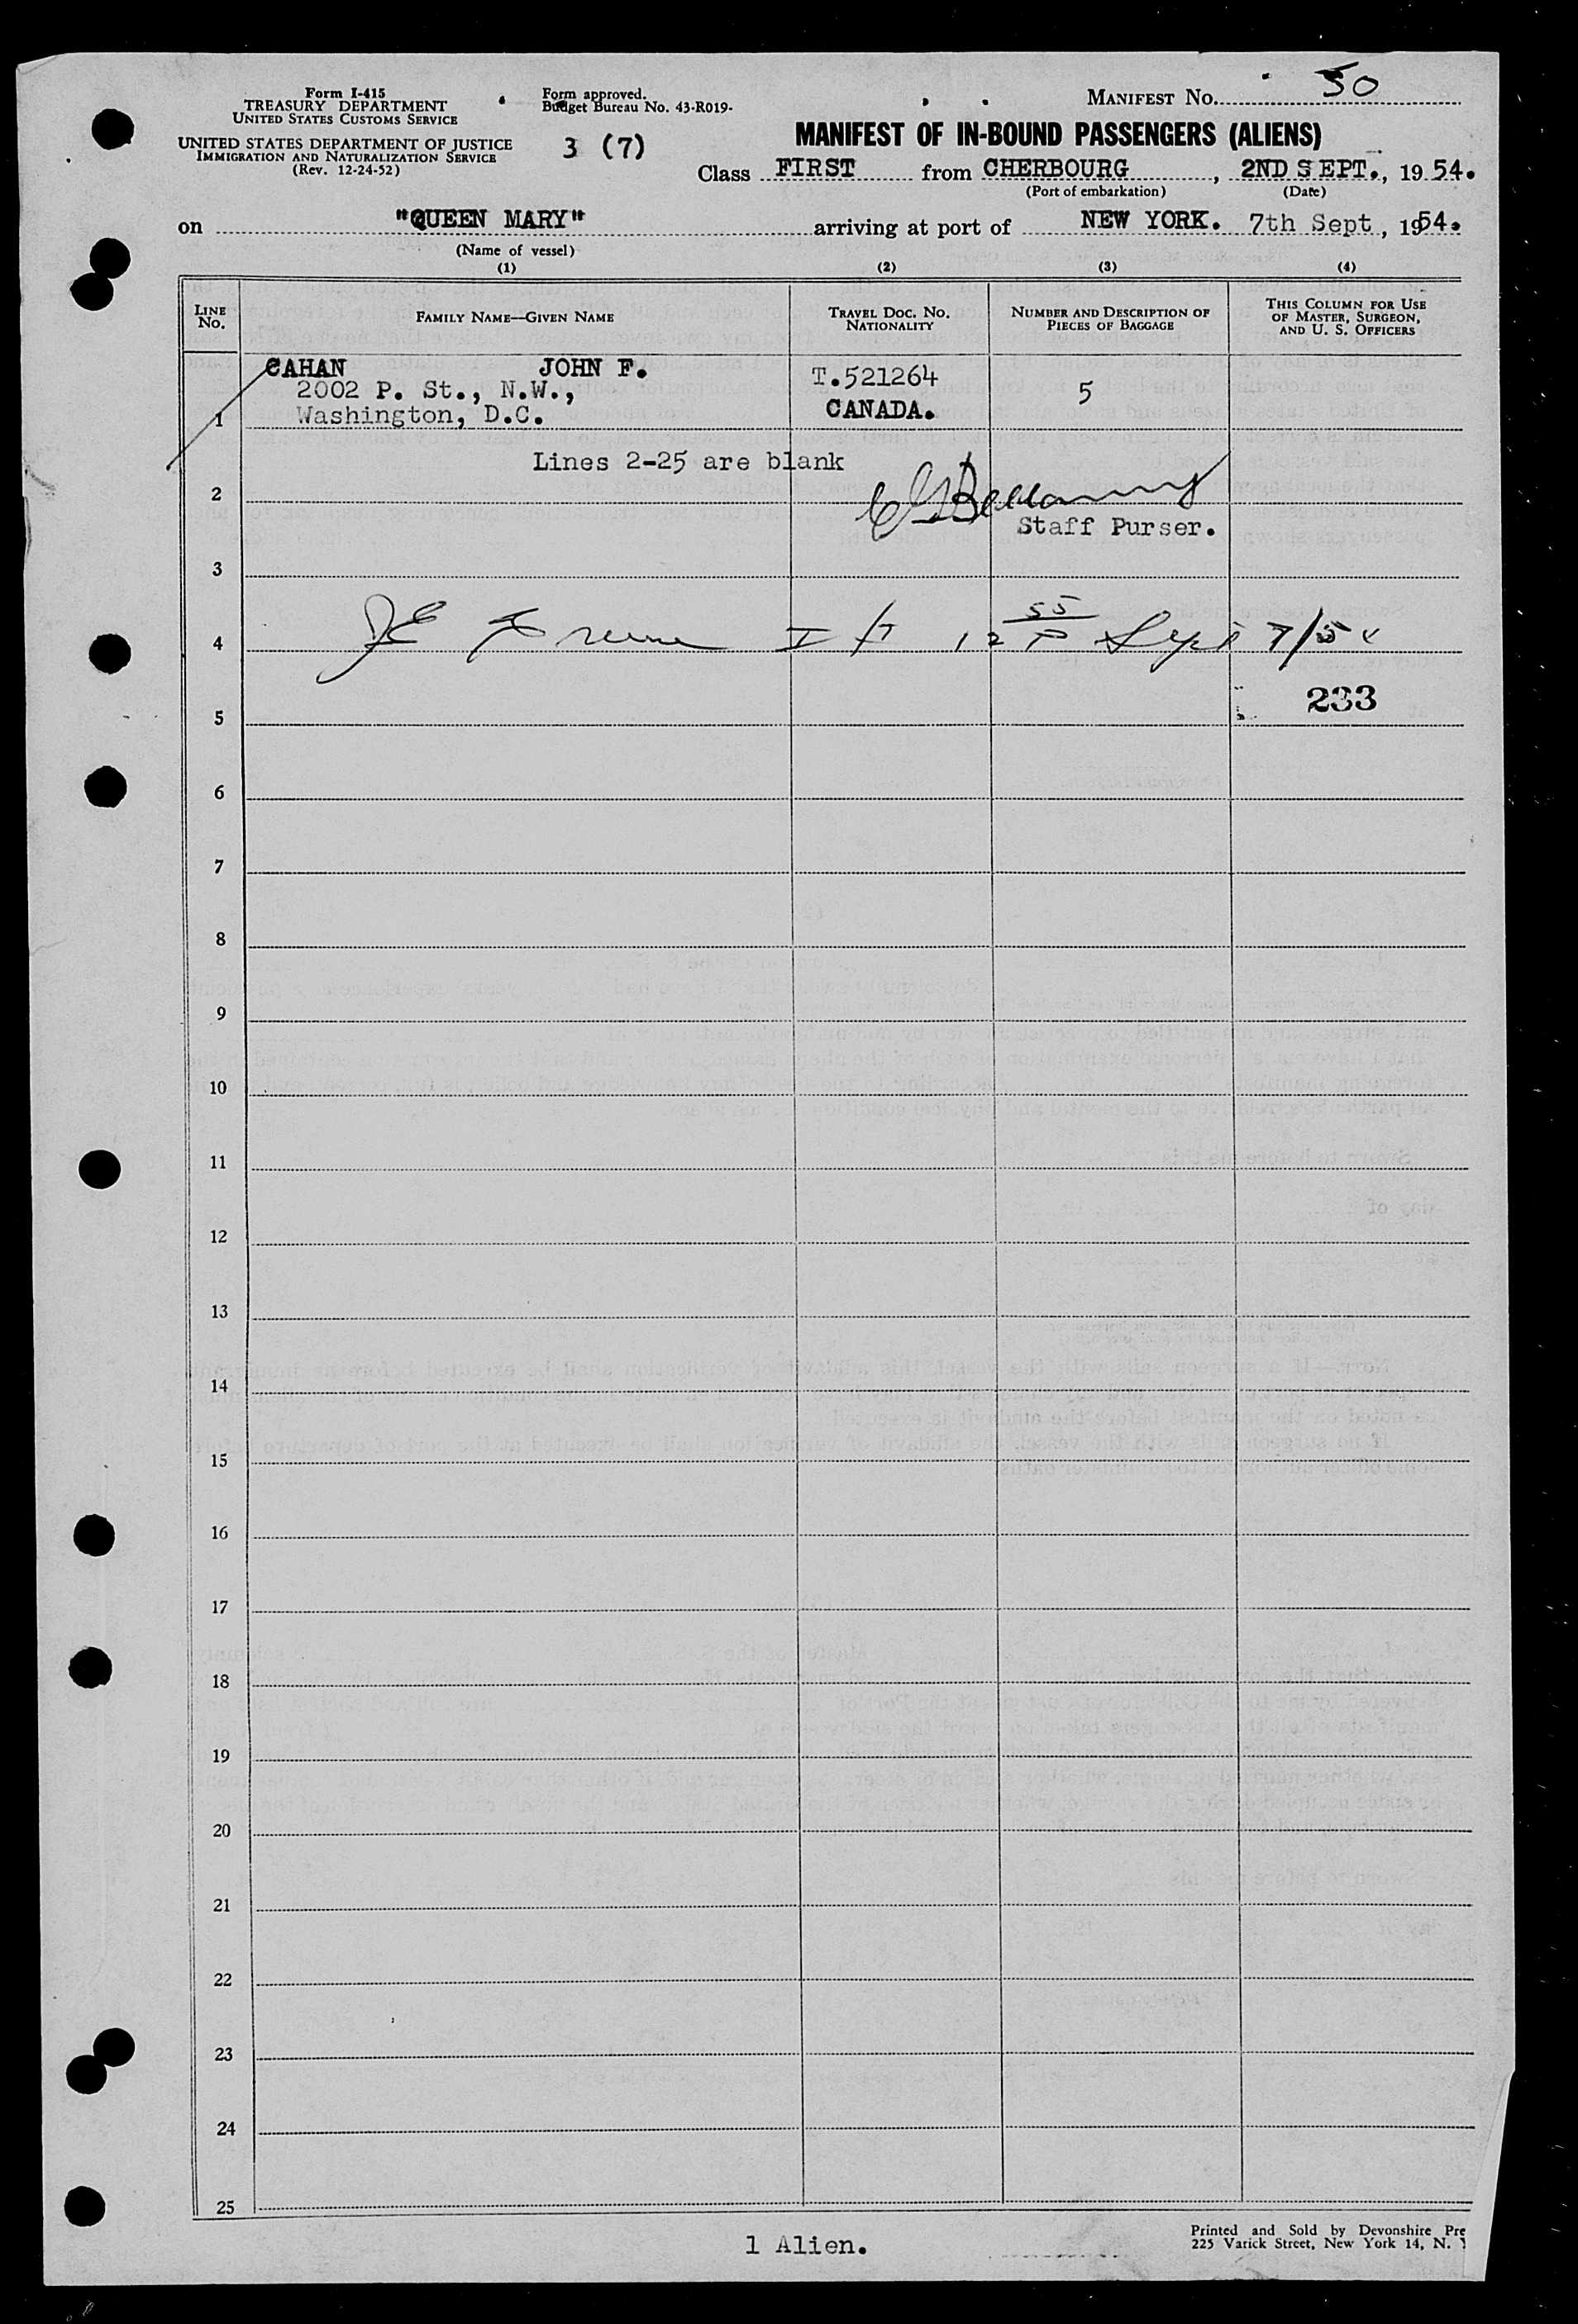 Form I-415
TREASURY DEPARTMENT
UNITED STATES CUSTOMS SERVICE
UNITED STATES DEPARTMENT OF JUSTICE
IMMIGRATION AND NATURALIZATION SERVICE
(Rev. 12-24-52)
Form approved.
Budget Bureau No. 43-R019-
3 (7)
MANIFEST NO. 50
MANIFEST OF IN-BOUND PASSENGERS (ALIENS)
Class FIRST from CHERBOURG, 2ND SEPT., 1954.
(Port of embarkation) (Date)
on "QUEEN MARY" arriving at port of NEW YORK. 7th Sept, 1954.
(Name of vessel)
(1) (2) (3) (4)
LINE NO.
FAMILY NAME—GIVEN NAME
TRAVEL DOC. NO. NATIONALITY
NUMBER AND DESCRIPTION OF PIECES OF BAGGAGE
THIS COLUMN FOR USE OF MASTER, SURGEON, AND U. S. OFFICERS
CAHAN JOHN F. T.521264 5
2002 P. St., N.W.,
1 Washington, D.C. CANADA.
Lines 2-25 are blank
2
Staff Purser.
3
4 12 55 P Sept 7/54
233
5
6
7
8
9
10
11
12
13
14
15
16
17
18
19
20
21
22
23
24
25
1 Alien.
Printed and Sold by Devonshire Pre
225 Varick Street, New York 14, N. Y